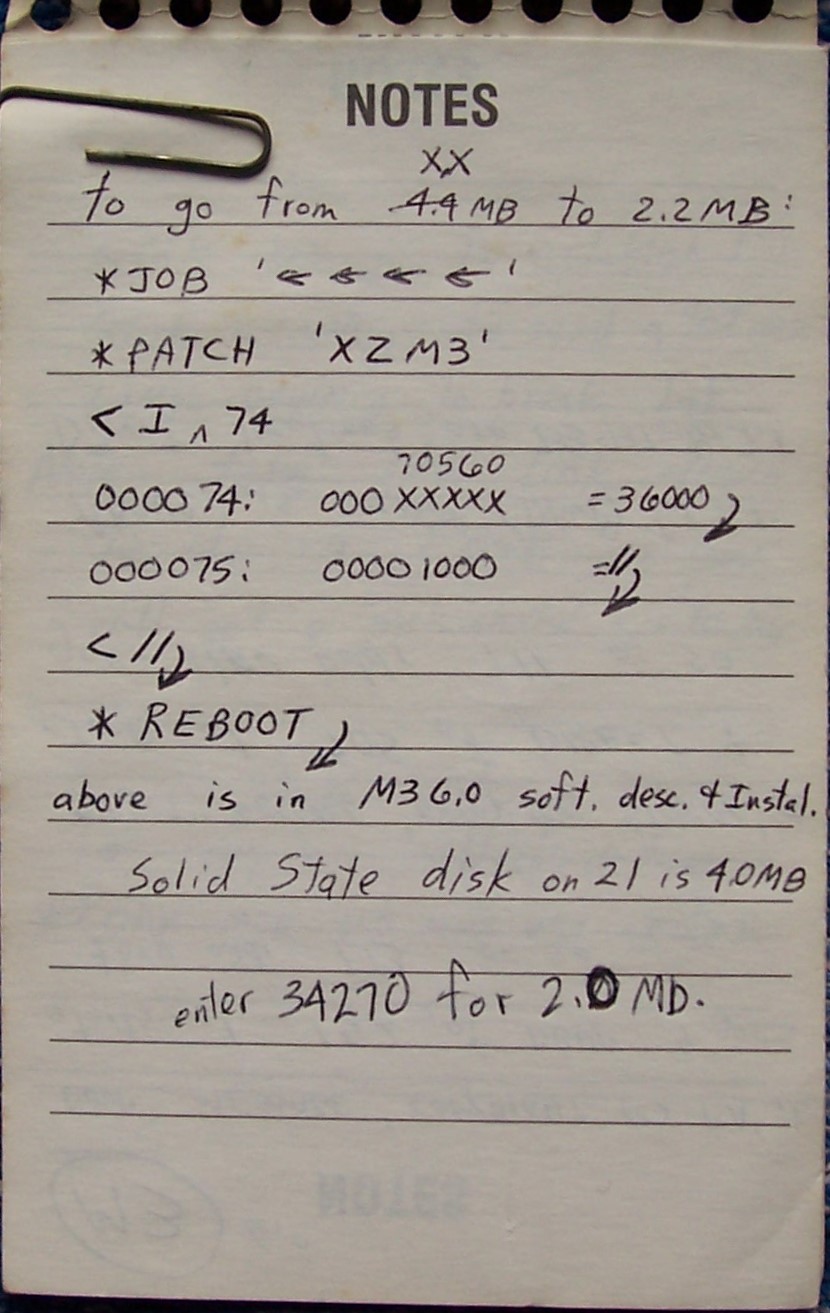 NOTES
X.X
to go from 4.4 MB to 2.2 MB:
*JOB '← ← ← ←'
*PATCH 'XZM3'
< I ^ 74
70560
000074: 000XXXXX =36000
000075: 00001000 =//
< //
* REBOOT
above is in M36.0 soft. desc. & Instal.
Solid State disk on 21 is 4.0MB
enter 34270 for 2.0 Mb.